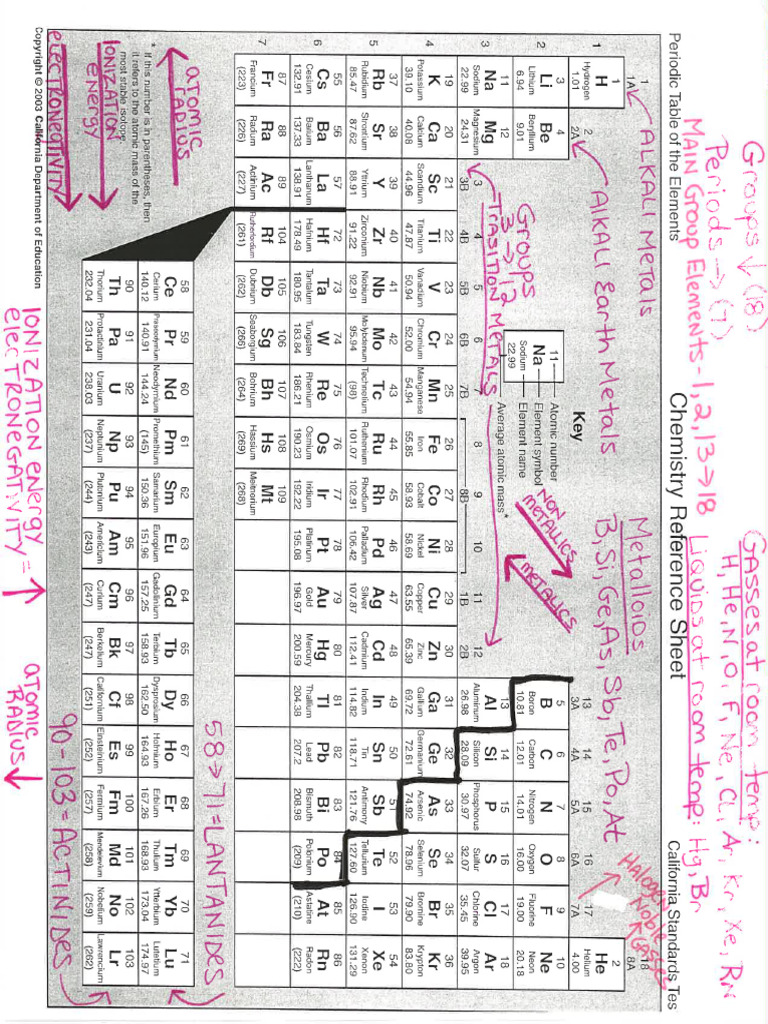 Groups ↓ (18)
Periods → (7)
MAIN Group Elements - 1, 2, 13 → 18
Gasses at room temp:
H, He, N, O, F, Ne, Cl, Ar, Kr, Xe, Rn
Liquids at room temp: Hg, Br
Chemistry Reference Sheet
Periodic Table of the Elements
California Standards Tes
ALKALI Metals
AlKAli Earth Metals
Metalloids
B, Si, Ge, As, Sb, Te, Po, At
HAlogens
Noble Gasses
1 1A
2 2A
13 3A
14 4A
15 5A
16 6A
17 7A
18 8A
Key
11 Atomic number
Na Element symbol
Sodium Element name
22.99 Average atomic mass*
NON METALLICS
METALLICS
Groups
3 → 12
TRASITION METALS
3 4 5 6 7 8 9 10 11 12
3B 4B 5B 6B 7B 8B 1B 2B
1
1 H Hydrogen 1.01
2 He Helium 4.00
2
3 Li Lithium 6.94
4 Be Beryllium 9.01
5 B Boron 10.81
6 C Carbon 12.01
7 N Nitrogen 14.01
8 O Oxygen 16.00
9 F Fluorine 19.00
10 Ne Neon 20.18
3
11 Na Sodium 22.99
12 Mg Magnesium 24.31
13 Al Aluminum 26.98
14 Si Silicon 28.09
15 P Phosphorus 30.97
16 S Sulfur 32.07
17 Cl Chlorine 35.45
18 Ar Argon 39.95
4
19 K Potassium 39.10
20 Ca Calcium 40.08
21 Sc Scandium 44.96
22 Ti Titanium 47.87
23 V Vanadium 50.94
24 Cr Chromium 52.00
25 Mn Manganese 54.94
26 Fe Iron 55.85
27 Co Cobalt 58.93
28 Ni Nickel 58.69
29 Cu Copper 63.55
30 Zn Zinc 65.39
31 Ga Gallium 69.72
32 Ge Germanium 72.61
33 As Arsenic 74.92
34 Se Selenium 78.96
35 Br Bromine 79.90
36 Kr Krypton 83.80
5
37 Rb Rubidium 85.47
38 Sr Strontium 87.62
39 Y Yttrium 88.91
40 Zr Zirconium 91.22
41 Nb Niobium 92.91
42 Mo Molybdenum 95.94
43 Tc Technetium (98)
44 Ru Ruthenium 101.07
45 Rh Rhodium 102.91
46 Pd Palladium 106.42
47 Ag Silver 107.87
48 Cd Cadmium 112.41
49 In Indium 114.82
50 Sn Tin 118.71
51 Sb Antimony 121.76
52 Te Tellurium 127.60
53 I Iodine 126.90
54 Xe Xenon 131.29
6
55 Cs Cesium 132.91
56 Ba Barium 137.33
57 La Lanthanum 138.91
72 Hf Hafnium 178.49
73 Ta Tantalum 180.95
74 W Tungsten 183.84
75 Re Rhenium 186.21
76 Os Osmium 190.23
77 Ir Iridium 192.22
78 Pt Platinum 195.08
79 Au Gold 196.97
80 Hg Mercury 200.59
81 Tl Thallium 204.38
82 Pb Lead 207.2
83 Bi Bismuth 208.98
84 Po Polonium (209)
85 At Astatine (210)
86 Rn Radon (222)
7
87 Fr Francium (223)
88 Ra Radium (226)
89 Ac Actinium (227)
104 Rf Rutherfordium (261)
105 Db Dubnium (262)
106 Sg Seaborgium (266)
107 Bh Bohrium (264)
108 Hs Hassium (269)
109 Mt Meitnerium (268)
58 → 71 = LANTANIDES
atomic RADIUS
* If this number is in parentheses, then
it refers to the atomic mass of the
most stable isotope.
IONIZATION energy
electronegativity
58 Ce Cerium 140.12
59 Pr Praseodymium 140.91
60 Nd Neodymium 144.24
61 Pm Promethium (145)
62 Sm Samarium 150.36
63 Eu Europium 151.96
64 Gd Gadolinium 157.25
65 Tb Terbium 158.93
66 Dy Dysprosium 162.50
67 Ho Holmium 164.93
68 Er Erbium 167.26
69 Tm Thulium 168.93
70 Yb Ytterbium 173.04
71 Lu Lutetium 174.97
90 Th Thorium 232.04
91 Pa Protactinium 231.04
92 U Uranium 238.03
93 Np Neptunium (237)
94 Pu Plutonium (244)
95 Am Americium (243)
96 Cm Curium (247)
97 Bk Berkelium (247)
98 Cf Californium (251)
99 Es Einsteinium (252)
100 Fm Fermium (257)
101 Md Mendelevium (258)
102 No Nobelium (259)
103 Lr Lawrencium (262)
90 - 103 = ACTINIDES
Copyright © 2003 California Department of Education
IONIZATION energy
electRONEGATIVITY = ↑
atomic RADIUS ↓